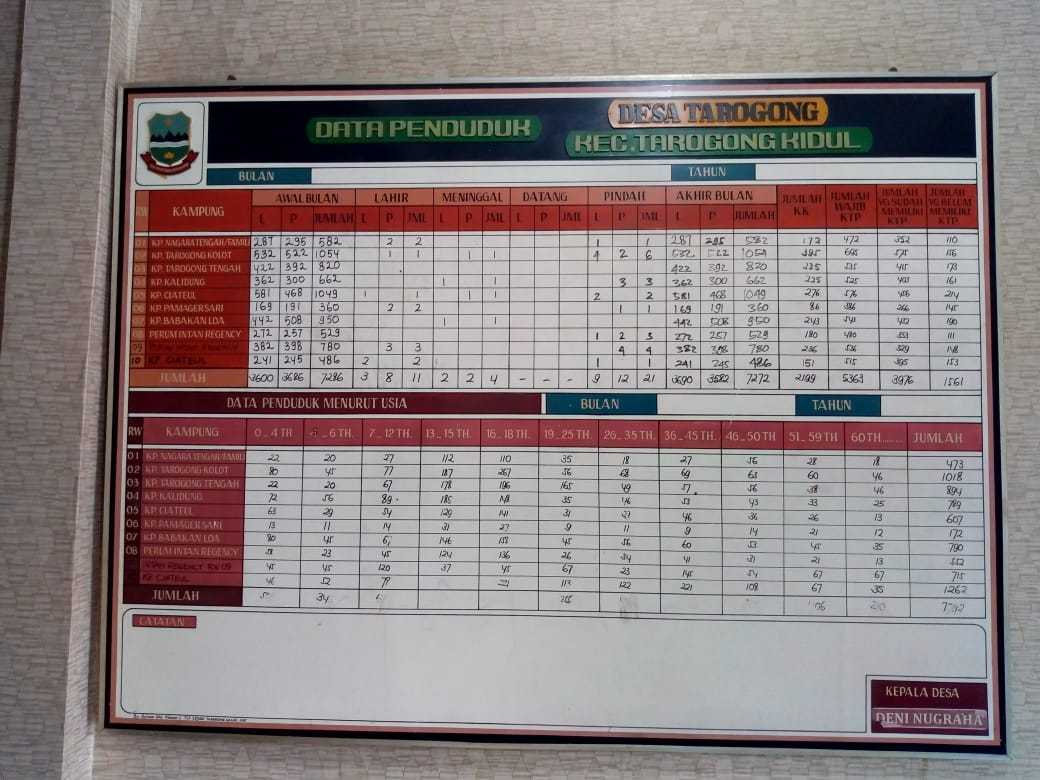 DATA PENDUDUK
DESA TAROGONG
KEC.TAROGONG KIDUL
BULAN TAHUN
RW KAMPUNG AWAL BULAN LAHIR MENINGGAL DATANG PINDAH AKHIR BULAN JUMLAH KK JUMLAH WAJIB KTP JUMLAH YG SUDAH MEMILIKI KTP JUMLAH YG BELUM MEMILIKI KTP
L P JUMLAH L P JML L P JML L P JML L P JML L P JUMLAH
01 KP. NAGARATENGAH/FAMILI 287 295 582 2 2 1 1 287 295 582 172 472 352 110
02 KP. TAROGONG KOLOT 532 522 1054 1 1 1 1 4 2 6 532 522 1054
03 KP. TAROGONG TENGAH 422 392 820 422 392 820 225 415 173
04 KP. KALIDUNG 362 300 662 1 1 3 3 362 300 662 225 525 161
05 KP. CIATEUL 581 468 1049 1 1 1 1 2 2 581 468 1049 276 576 214
06 KP. PAMAGERSARI 169 191 360 2 2 1 1 169 191 360 86 266 145
07 KP. BABAKAN LOA 442 508 950 1 1 442 508 950 243 452 190
PERUM INTAN REGENCY 272 257 529 1 2 3 272 257 529 180 111
09 382 398 780 3 3 4 4 382 398 780 236 536 329 148
10 KP. CIATEUL 241 245 486 2 2 1 1 241 245 486 151 515 395 153
JUMLAH 3600 3686 7286 3 8 11 2 2 4 - - - 9 12 21 3690 3582 7272 2199 5369 3976 1561
DATA PENDUDUK MENURUT USIA BULAN TAHUN
RW KAMPUNG 0 - 4 TH - 6 TH. 7 - 12 TH. 13 - 15 TH. 16 - 18 TH. 19 - 25 TH. 26 - 35 TH. 36 - 45 TH. 46 - 50 TH 51 - 59 TH 60 TH....... JUMLAH
01 KP. NAGARA TENGAH/FAMILI 22 20 27 112 110 35 18 27 56 28 18 473
02 KP. TAROGONG KOLOT 80 45 77 187 267 56 68 69 65 60 46 1018
03 KP. TAROGONG TENGAH 22 20 67 178 196 165 49 57 56 38 46 894
04 KP. KALIDUNG 72 56 89 185 35 46 53 43 33 25 789
05 KP. CIATEUL 63 29 54 129 141 31 27 46 36 26 13 607
06 KP. PAMAGER SARI 13 11 14 31 27 9 11 9 14 21 12 172
07 KP. BABAKAN LOA 80 45 146 45 56 60 53 45 35 790
08 PERUM INTAN REGENCY 23 45 124 136 26 34 41 31 21 13 552
INTAN REGENCY RW 09 45 45 120 37 45 67 23 145 54 67 67 715
KP. CIATEUL 46 52 113 122 221 108 67 35 1262
JUMLAH 34
CATATAN
KEPALA DESA
DENI NUGRAHA